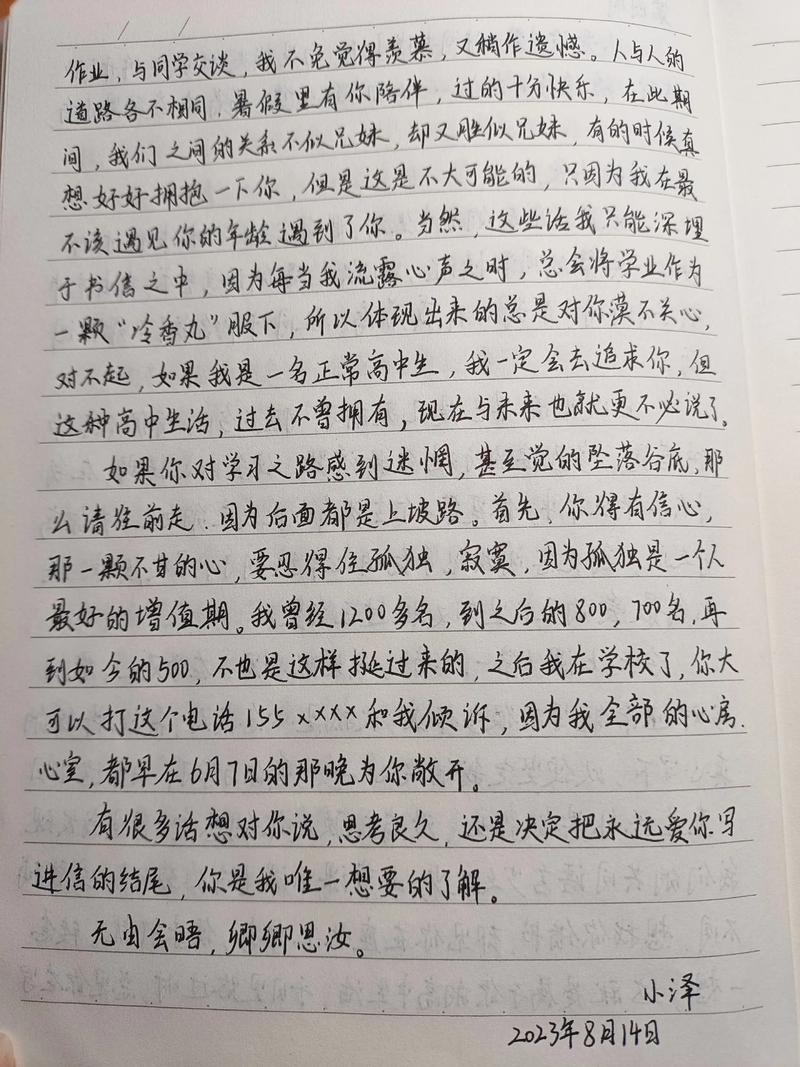 作业，与同学交谈，我不免觉得羡慕，又稍作遗憾。人与人的
道路各不相同，暑假里有你陪伴，过的十分快乐，在此期
间，我们之间的关系不似兄妹，却又胜似兄妹，有的时候真
想好好拥抱一下你，但是这是不大可能的，只因为我在最
不该遇见你的年龄遇到了你。当然，这些话我只能深埋
于书信之中，因为每当我流露心声之时，总会将学业作为
一颗“冷香丸”服下，所以体现出来的总是对你漠不关心，
对不起，如果我是一名正常高中生，我一定会去追求你，但
这种高中生活，过去不曾拥有，现在与未来也就更不必说了。
如果你对学习之路感到迷惘，甚至觉的坠落谷底，那
么请往前走，因为后面都是上坡路。首先，你得有信心，
那一颗不甘的心，要忍得住孤独，寂寞，因为孤独是一个人
最好的增值期。我曾经1200多名，到之后的800，700名，再
到如今的500，不也是这样挺过来的，之后我在学校了，你大
可以打这个电话155××××和我倾诉，因为我全部的心房、
心室，都早在6月7日的那晚为你敞开。
有很多话想对你说，思考良久，还是决定把永远爱你写
进信的结尾，你是我唯一想要的了解。
无由会晤，卿卿思汝。
小泽
2023年8月14日